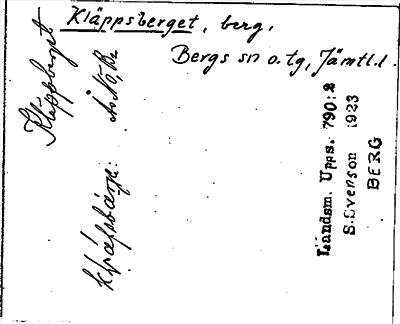 Kläppsberget, berg,
Bergs sn o. tg, Jämtl.l.
Kläppberget
Landsm. Upps. 790:2
S. Svenson 1923
BERG